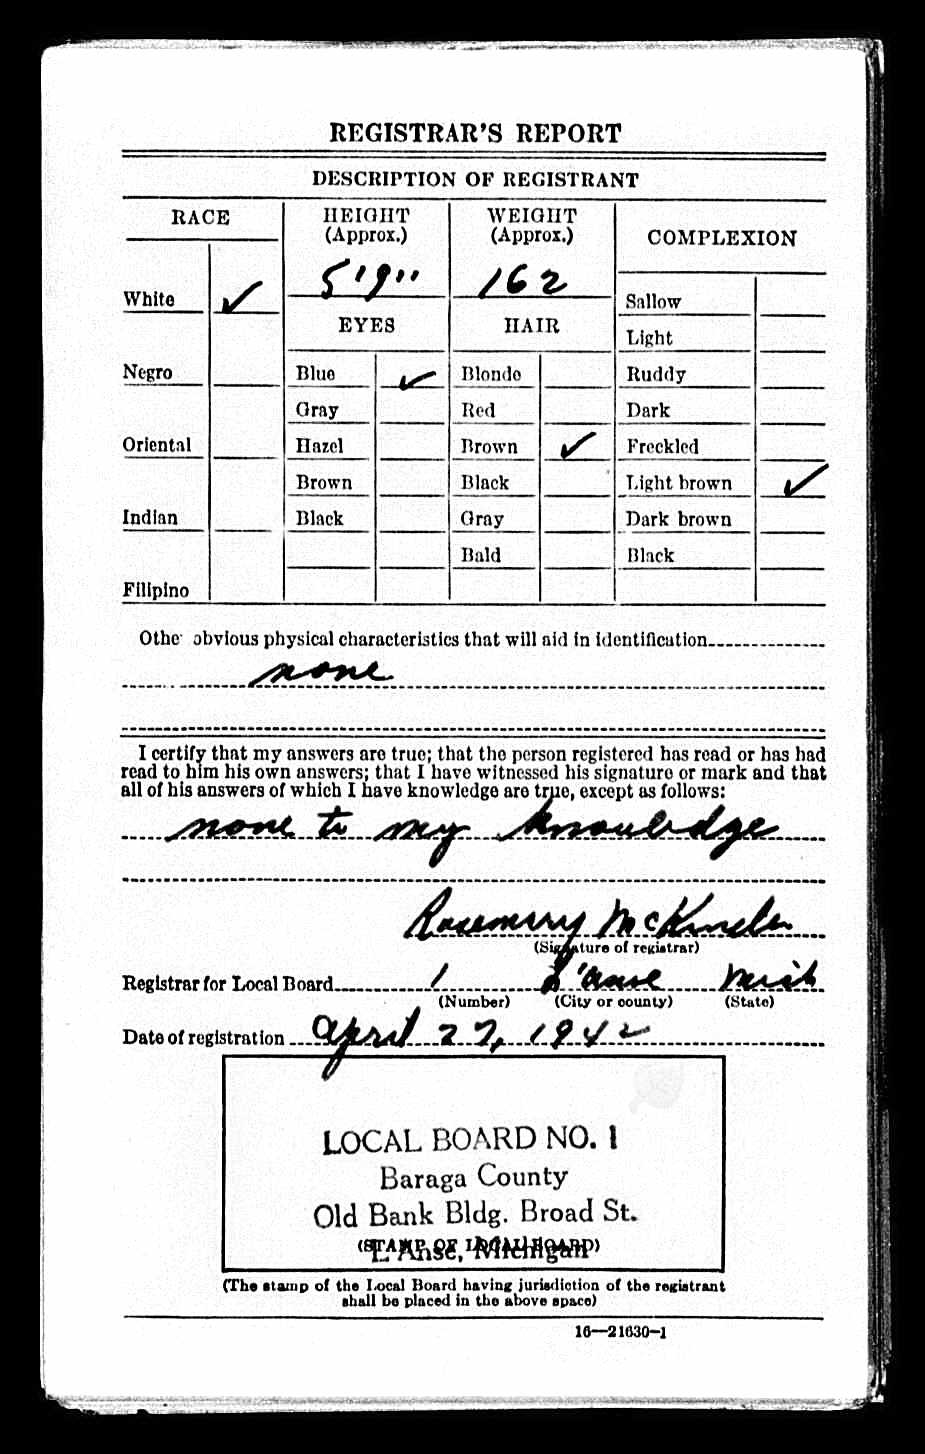 REGISTRAR'S REPORT
DESCRIPTION OF REGISTRANT
RACE
White ✓
Negro
Oriental
Indian
Filipino
HEIGHT
(Approx.)
5'9"
EYES
Blue ✓
Gray
Hazel
Brown
Black
WEIGHT
(Approx.)
162
HAIR
Blonde
Red
Brown ✓
Black
Gray
Bald
COMPLEXION
Sallow
Light
Ruddy
Dark
Freckled
Light brown ✓
Dark brown
Black
Othe obvious physical characteristics that will aid in identification
none
I certify that my answers are true; that the person registered has read or has had
read to him his own answers; that I have witnessed his signature or mark and that
all of his answers of which I have knowledge are true, except as follows:
none to my knowledge
Rosemary
(Signature of registrar)
Registrar for Local Board 1 L'anse Mich
(Number) (City or county) (State)
Date of registration April 27, 1942
LOCAL BOARD NO. 1
Baraga County
Old Bank Bldg. Broad St.
L'Anse, Michigan
(STAMP OF LOCAL BOARD)
(The stamp of the Local Board having jurisdiction of the registrant
shall be placed in the above space)
16—21630-1